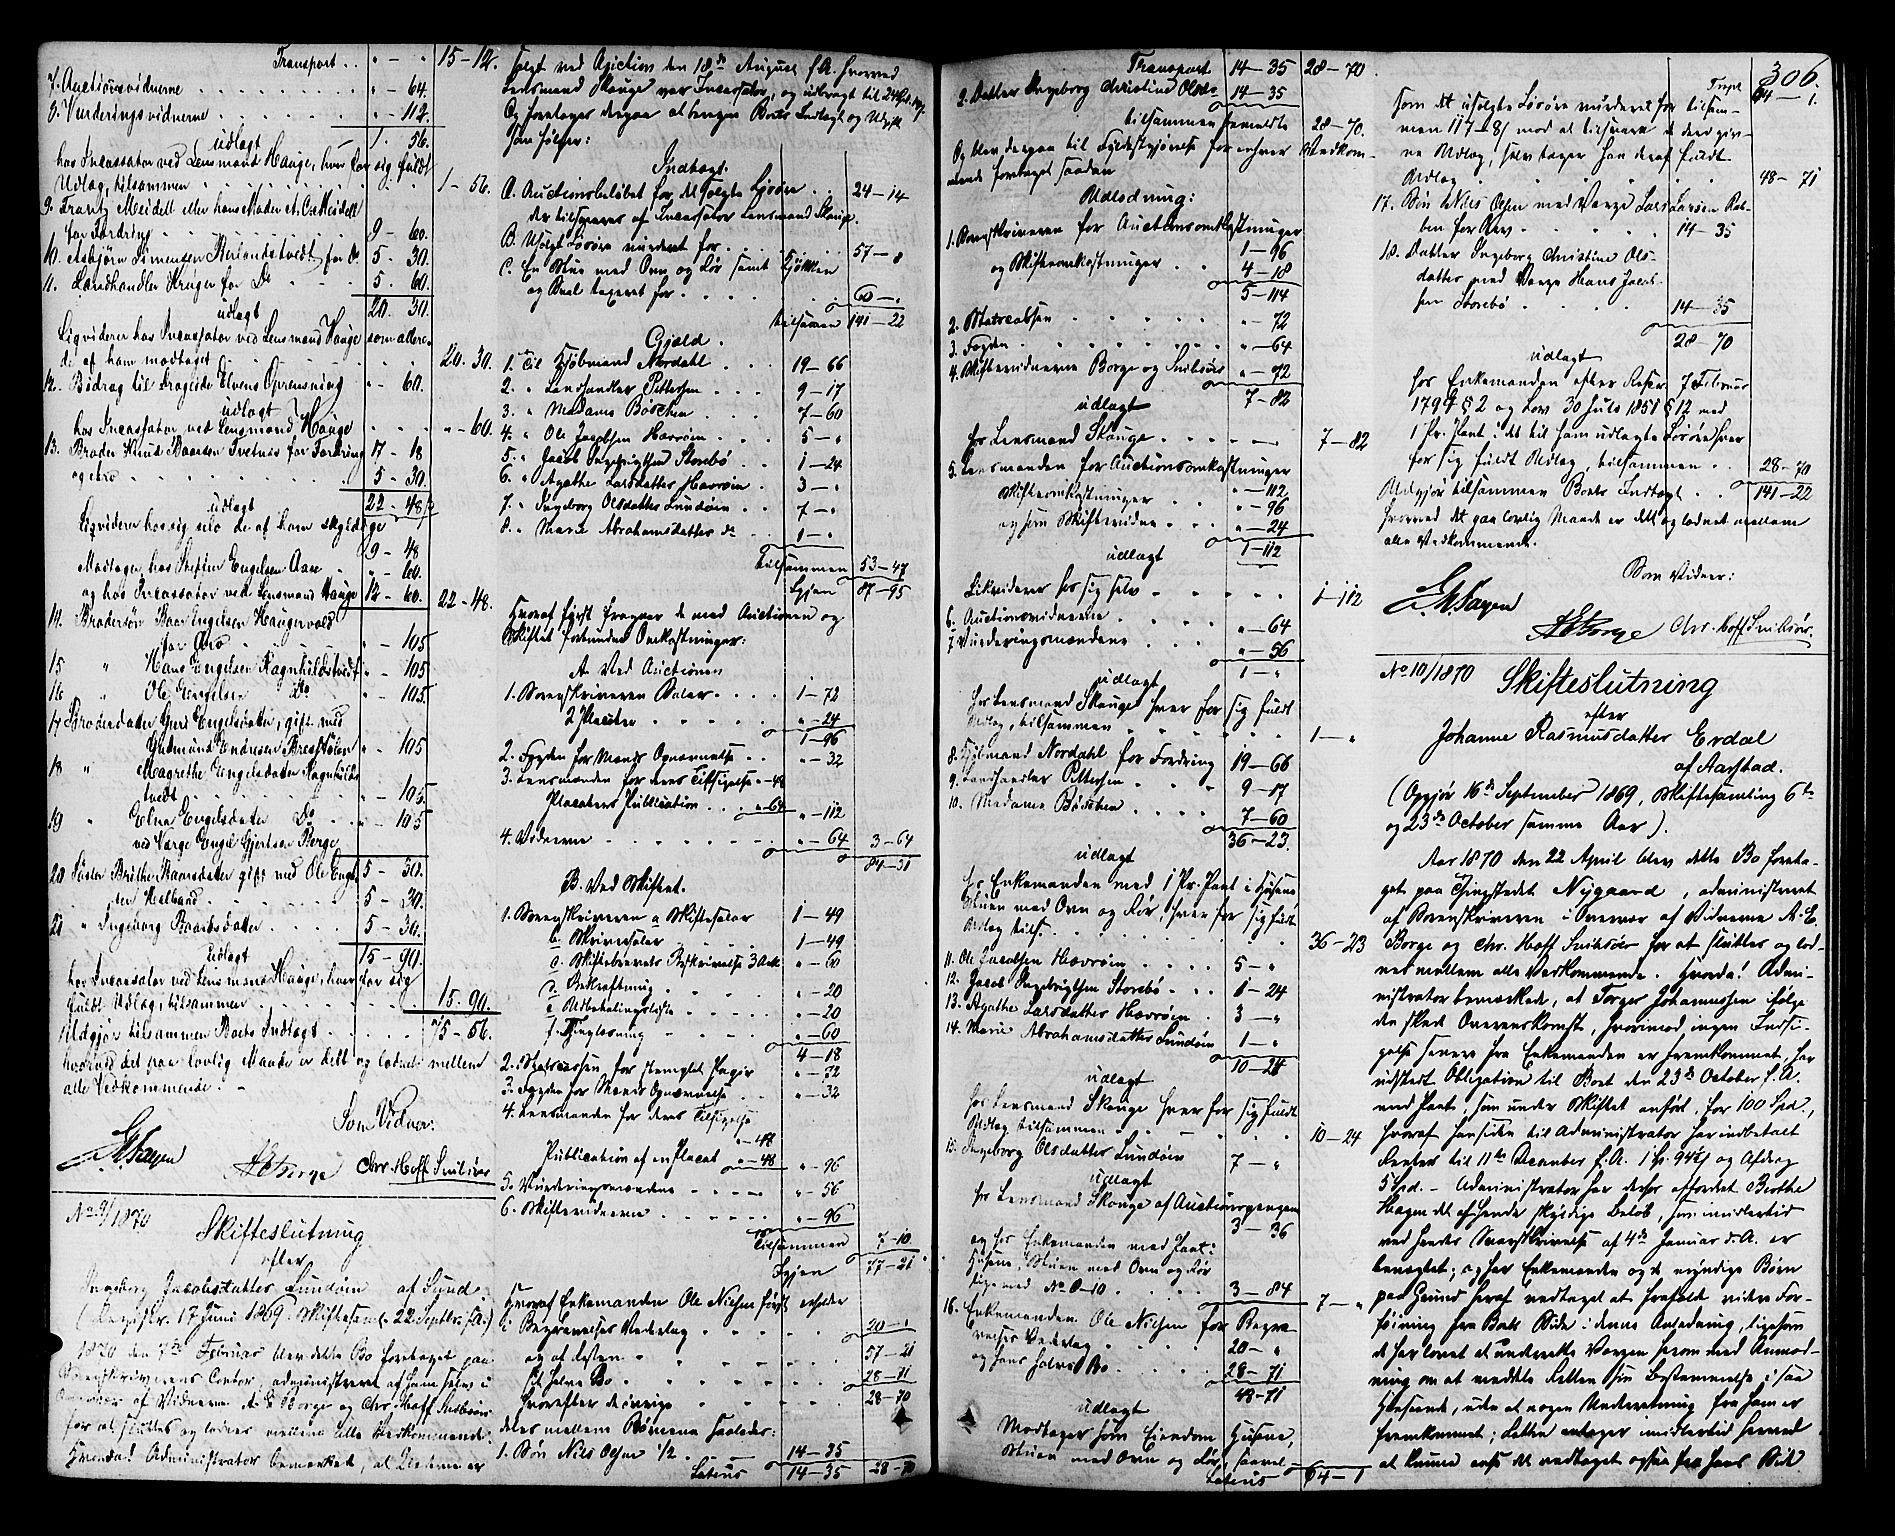 Transport . . " - " 15-12.
7. Auctionsvidnerne . . . . . " - 64.
8. Vurderingsvidnerne . . . . . " - 112.
udlagt 1. 56.
hos Incassator ved Lensmand Hauge, hver for sig fuldt
Udlæg, tilsammen . . . . . 1-56.
9. Frantz Meidell eller hans Moder
for Fordring . . . 9 - 60.
10. Asbjörn Simensen for Do 5 - 30.
11. Landhandler Krüger for Do . . . 5 - 60.
udlagt 20. 30.
Liqviderer hos Incassator ved Lensmand Hauge som allere-
de af ham modtaget . . . . 20. 30.
12. Bidrag til Elvens Oprensning " - 60.
udlagt
hos Incassator ved Lensmand Hauge . . . " - 60.
13. Broder Knud Baardsen Tvetnes for Fordring 17 - 18
og Arv . . . . . 5 - 30.
udlagt 22 - 48
Liqviderer hos sig selv de af ham skyldige
9 - 48
Modtager hos Engelsen Aase . " - 60.
og hos Incassator ved Lensmand Hauge 12 - 60. 22 - 48.
14. Brodersön Baar Engelsen Haugervold
for Arv . . . " - 105
15 " Hans Engelsen Ragnhildstvedt " - 105
16 " Ole Engelsen Do " - 105.
17 Broderdatter Engelsdatter, gift med
Gudmund Endresen " - 105
18 " Magrethe Engelsdatter Ragnhilds-
tvedt . . . . . " - 105
19 " Elna Engelsdatter Do . . . " - 105
ved Værge Engel Gjertsen Berge
20 Söster Brithe Baarsdatter gift med Ole Engel- 5 - 30.
sen . . . . . 5 - 30.
21 " Ingeborg Baardsdatter . . . . 5 - 30.
udlagt 15 - 90.
hos Incassator ved Lensmand Hauge, hver for sig
fuldt Udlæg, tilsammen . . . . . 15. 90.
Udgjör tilsammen Boets Indtægt . . . 75 - 56.
hvorved det paa lovlig Maade er delt og lodnet mellem
alle Vedkommende. -
Som Vidner:
A E Borge Chr. Hoff Sniksöer
No 9/1870
Skifteslutning
efter
Ingeborg Jacobsdatter Lundöen af Sund.
(Registr. 17 Juni 1869. Skiftesaml. 22 Septbr. s. A.)
1870 den 7de Februar blev dette Bo foretaget paa
Sorenskriverens Contor, administreret af ham selv i
Overvær af Vidnerne A. E. Borge og Chr. Hoff Sniksöer
for at sluttes og lodnes mellem alle Vedkommende.
Hvorda! Administrator bemærket, at Löserne er
solgt ved Auction den 18de August f. A. hvorved
Lensmand Skauge var Incassator, og udbragt til 24
Og foretages derpaa at beregne Boets Indtægt og Udgift
som fölger:
Indtægt.
A. Auctionsbelöbet for det solgte Lösöre . . 24 - 14
der tilsvares af Incassator Lensmand Skauge.
B. Usolgt Lösöre vurderet for . . . . 57 - 8
C. En Stue med Ovn og Rör samt Kjökken
og taxeret for . . . . . 60 - "
tilsammen 141 - 22
Gjæld.
1. Til Kjöbmand Nordahl . . . 19 - 66
2. " Landhandler Pettersen . . . 9 - 17
3. " Madame Böschen . . . . 7 - 60
4. " Ole Jacobsen Havröen . . . 5 - "
5. " Jacob Ingebrigtsen Storebö . . 1 - 24
6. " Agathe Larsdatter Havröen . . 3 - "
7. " Ingeborg Olsdatter Lundöen . . 7 - "
8. " Marie Abrahamsdatter do . . 1 - "
Tilsammen 53 - 47
Igjen 87 - 95
Hvoraf först fragaar de med Auctionen og
Skiftet forbundne Omkostninger:
A Ved Auctionen
1. Sorenskriveren Salær . . . . 1 - 72
2 Placater . . . . . " - 24
1 - 96
2. Fogden for Mænds Opnævnelse . . " - 32
3. Lensmanden for deres Tilsigelse " - 48
Placatens Publication . . . " - 64 " - 112
4. Vidnerne . . . . . . " - 64 3 - 64
84 - 31
B. Ved Skiftet.
1. Sorenskriveren a Skiftesalær 1 - 49
b. Skriversalær . . . . 1 - 49
c. Skiftebrevets Beskrivelse 3 Ark " - 60
d. Bekræftning . . . . " - 20
e. Udbetalingsliste . . . . " - 20
f. Thinglæsning . . . . " - 60
4 - 18
2. Statcassen for stemplet Papir " - 72
3. Fogden for Mænds Opnævnelse . . " - 32
4. Lensmanden for deres Tilsigelse
" - 48
Publication af en Placat " - 48 " - 96
5. Vurderingsmændene . . . . " - 56
6. Skiftevidnerne . . . . . " - 96
Tilsammen 7 - 10
Igjen 77 - 21
Hvoraf Enkemanden Ole Nielsen först erholder
i Begravelses Vederlag . . . . . 20 - "
og af Resten . . . . . . 57 - 21
sit halve Bo . . . . . . 28 - 71
hvorefter de övrige . . . . . 28 - 70
deles mellem Börnene saaledes:
1. Sön Nils Olsen 1/2 . . . . 14 - 35
Lateris 14 - 35 28 - 70
306.
Transport 14 - 35 28 - 70
2. Datter Ingeborg Christine Olsd. 14 - 35
tilsammen bemeldte 28 - 70.
Og blev derpaa til Fyldestgjörelse for enhver Vedkom-
mende foretaget saadan
Udlodning:
1. Sorenskriveren for Auctionsomkostninger
1 - 96
og Skifteomkostninger . . 4 - 18
5 - 114
2. Statscassen . . . . . " - 72
3. Fogden . . . . . . " - 64
4. Skiftevidnerne Borge og Sniksöer " - 72
udlagt 7 - 82
hos Lensmand Skauge . . . . . 7 - 82
5. Lensmanden for Auctionsomkostninger
" - 112
Skifteomkostninger . . . " - 96
og som Skiftevidne . . . " - 24
udlagt 1 - 112
Likviderer hos sig selv . . . . . 1 - 112
6. Auctionsvidnerne . . . . " - 64
7. Vurderingsmændene . . . . " - 56
udlagt 1 - "
hos Lensmand Skauge hver for sig fuldt
Udlæg, tilsammen . . . . . 1 - "
8. Kjöbmand Nordahl for Fordring 19 - 66
9. Landhandler Pettersen . . . 9 - 17
10. Madame Böschen . . . . 7 - 60
udlagt 36 - 23.
hos Enkemanden med 1 Pr. Pant i Husene
Stuen med Ovn og Rör, hver for sig fuldt
Udlæg tils. . . . . . . 36 - 23
11. Ole Jacobsen Havröen . . . 5 - "
12. Jacob Ingebrigtsen Storebö . . 1 - 24
13. Agathe Larsdatter Havröen . . 3 - "
14. Marie Abrahamsdatter Lundöen 1 - "
udlagt 10 - 24
hos Lensmand Skauge hver for sig fuldt
Udlæg tilsammen . . . . . 10 - 24
15. Ingeborg Olsdatter Lundöen 7 - "
udlagt
hos Lensmand Skauge af Auctionspengene
3 - 36
og hos Enkemanden med Pant i
Husene, Stuen med Ovn og Rör
lige med No 8-10 . . . . 3 - 84 7 - "
16. Enkemanden Ole Nielsen for Begra-
velses Vederlag . . . . . 20 - "
og hans halve Bo . . . . 28 - 71
udlagt 48 - 71
Modtager som Eiendom Husene,
Stuen med Ovn og Rör, saavel
Lateris 64 - 1
Trspt 64 - 1.
som det usolgte Lösöre vurderet for tilsam-
men 117 - 8 mod at tilsvare et deri giv-
ne Udlæg, selv tager han deraf fuldt
Udlæg . . . . . . 48 - 71
17. Sön Nils Olsen med Værge Lars Larsen
for Arv . . . . . 14 - 35
18. Datter Ingeborg Christine Ols-
datter med Værge Hans Jacob-
sen Storebö . . . . 14 - 35
udlagt 28 - 70
hos Enkemanden efter Reser. 7 Februar
1794 § 2 og Lov 30 Juli 1851 § 12 med
1 Pr. Pant i det til ham udlagte Lösöre hver
for sig fuldt Udlæg, tilsammen . . 28 - 70
Udgjör tilsammen Boets Indtægt . . 141 - 22
hvorved det paa lovlig Maade er delt og lodnet mellem
alle Vedkommende.
Som Vidner:
A E Borge Chr. Hoff Sniksöer.
No 10/1870 Skifteslutning
efter
Johanne Rasmusdatter Erdal
af Aarstad.
(Opgjör 16de September 1869, Skiftesamling 6te
og 23de October samme Aar).
Aar 1870 den 22 April blev dette Bo foreta-
get paa Thingstedet Nygaard, administreret
af Sorenskriveren i Overvær af Vidnerne A. E.
Borge og Chr. Hoff Sniksöer for at sluttes og lod-
nes mellem alle Vedkommende. Hvorda! Admi-
nistrator bemærkede, at Torger Johannessen i fölge
den skede Overenskomst, hvorimod ingen Indsi-
gelse senere fra Enkemanden er fremkommet, har
udstedt Obligation til Boet den 23de October f. A.
med Pant, som under Skiftet anfört, for 100 Spd.,
hvoraf han siden til Administrator har indbetalt
Renter til 11te December f. A. 1 Sp. 94 og Afdrag
5 Spd. - Administrator har derhos affordret Berthe
Hagen det af hende skyldige Belöb, som imidlertid
ved hendes Svarskrivelse af 4de Januar d. A. er
benægtet; og har Enkemanden og de myndige Börn
paa Grund heraf vedtaget at frafalde videre For-
föining fra Boets Side i denne Anledning, ligesom
de har lovet at underrette Værgen herom med Anmod-
ning om at meddele Retten sin Bestemmelse i saa
Henseende, uden at nogen Underretning fra ham er
fremkommet; Retten antager imidlertid herved
at kunne anse det vedtaget ogsaa fra hans Side